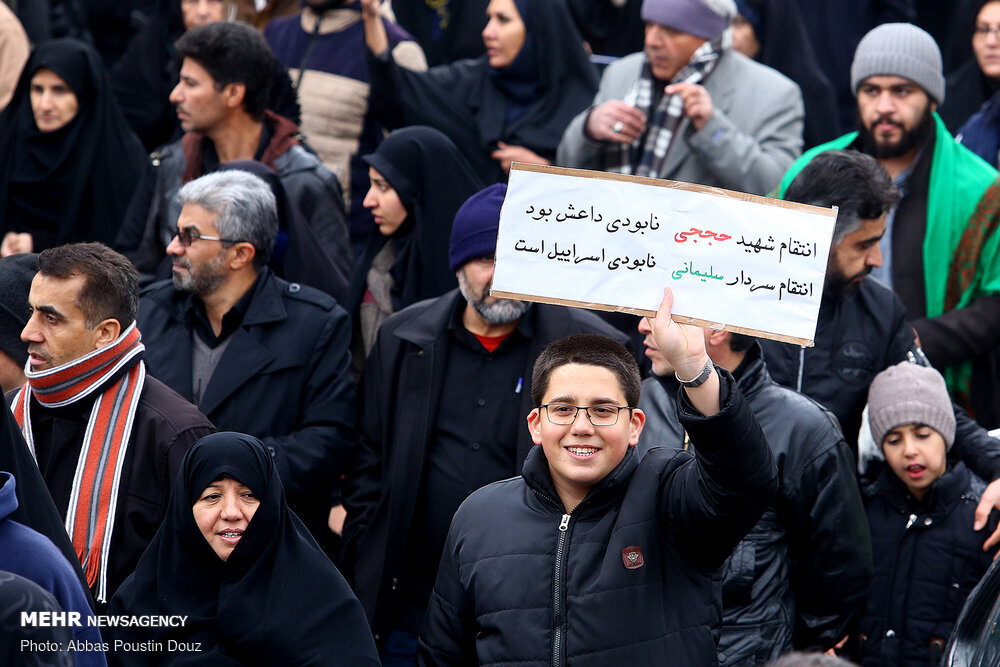 انتقام شهید حججی نابودی داعش بود
انتقام سردار سلیمانی نابودی اسراییل است
MEHR NEWSAGENCY
Photo: Abbas Poustin Douz